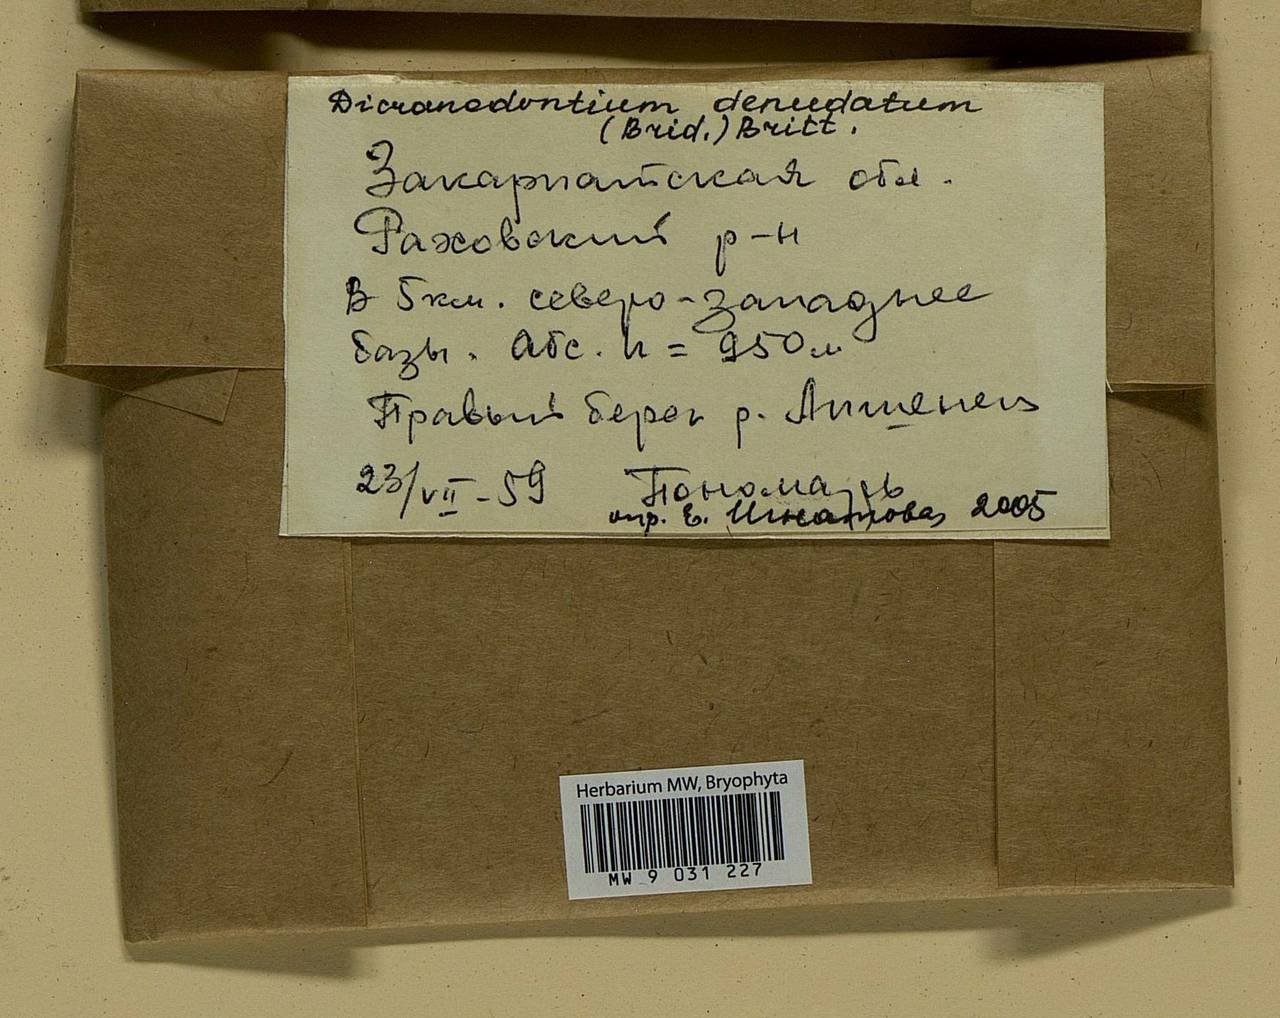 Dicranodontium denudatum
(Brid.) Britt.
Закарпатская обл.
Раховский р-н
В 5 км. северо-западнее
базы. Абс. h = 950 м
Правый берег р. Лишенец
23/VII-59 Пономарь
опр. Е. Игнатова 2005
Herbarium MW, Bryophyta
MW 9 031 227